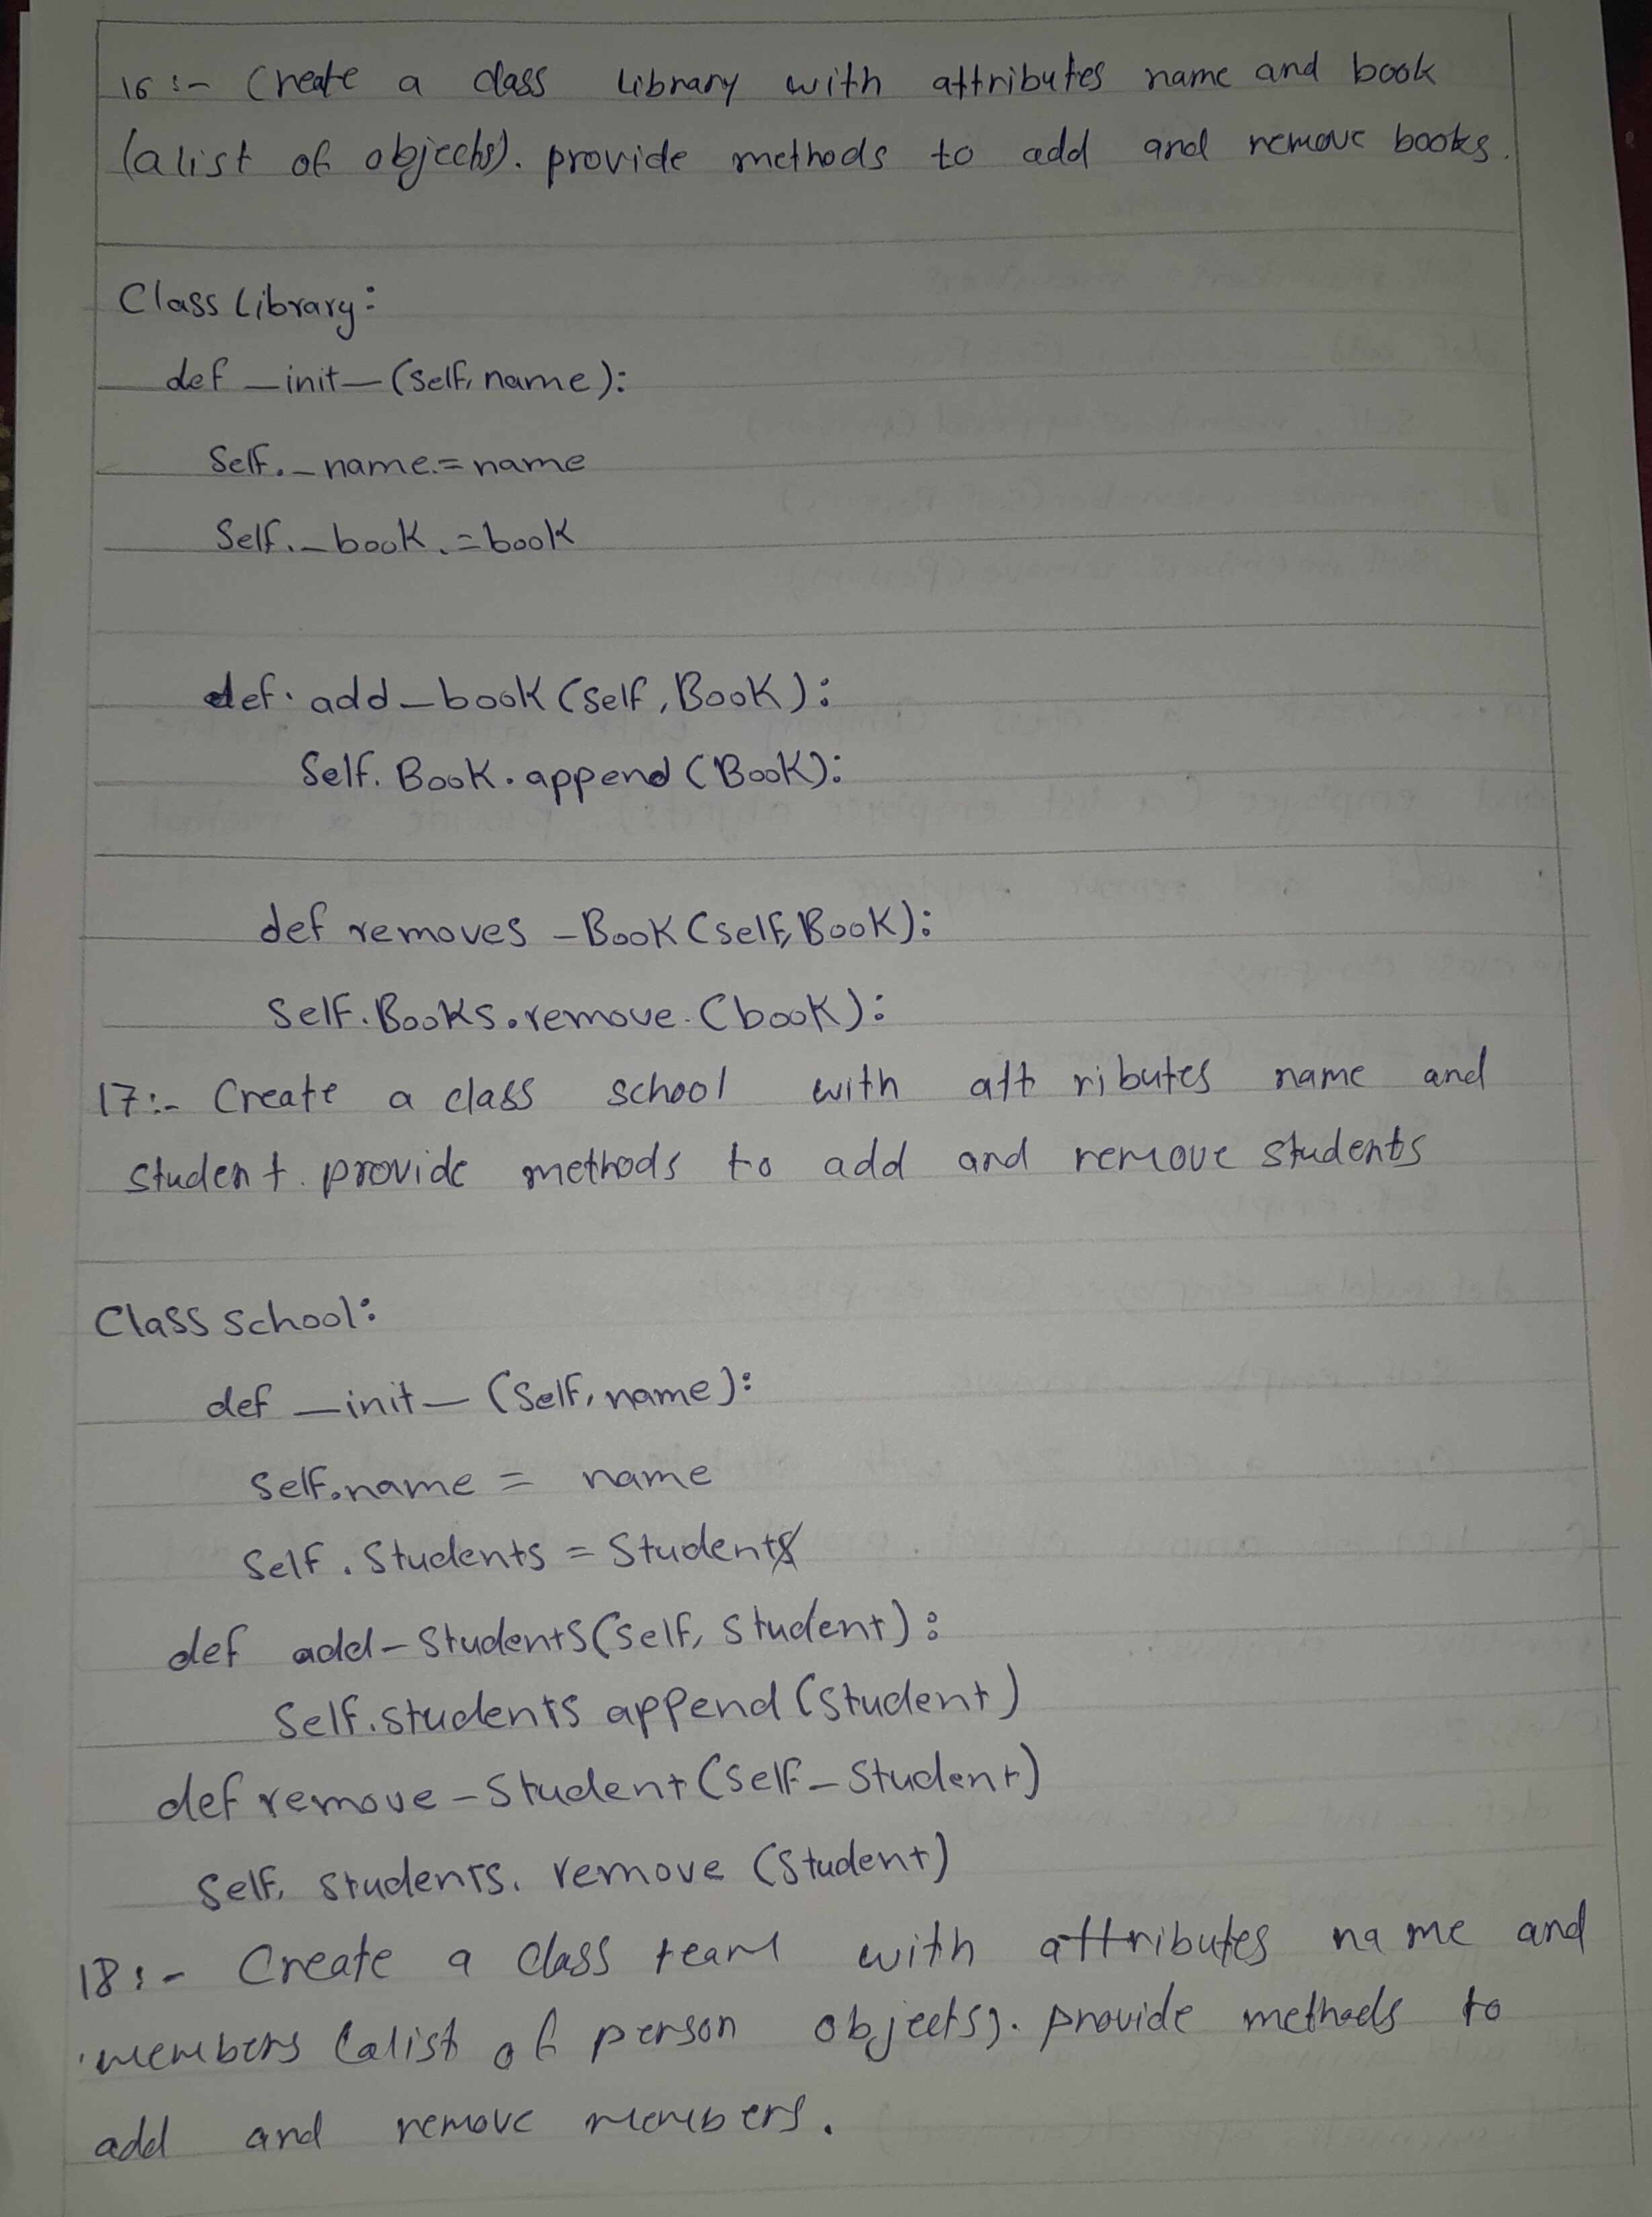 16:- Create a class Library with attributes name and book
(a list of objects). provide methods to add and remove books.
Class Library:
def _init_ (Self, name):
Self._name.=name
Self._book.=book
def. add_book (Self, Book):
Self. Book. append (Book):
def removes -Book (Self, Book):
Self. Books. remove. (book):
17:- Create a class school with att ributes name and
student. provide methods to add and remove students
Class School:
def _init_ (Self, name):
Self.name = name
Self. Students = Students
def add-Students (Self, Student):
Self. students append (Student)
def remove-Student (Self-Student)
Self. students. remove (Student)
18:- Create a class team with attributes na me and
members (a list of person objects). provide methods to
add and remove members.